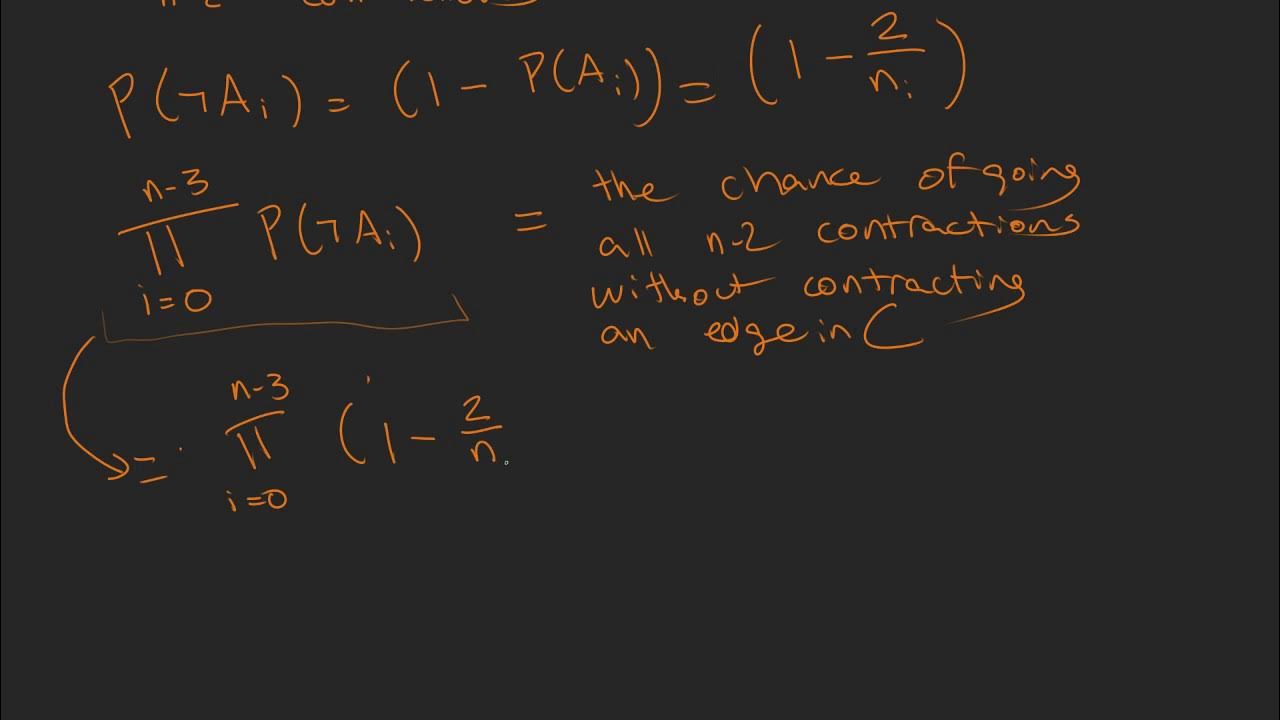 n-2
P(¬A_i) = (1 - P(A_i)) = (1 - 2/n_i)
∏_{i=0}^{n-3} P(¬A_i) = the chance of going
all n-2 contractions
without contracting
an edge in C
= ∏_{i=0}^{n-3} (1 - 2/n